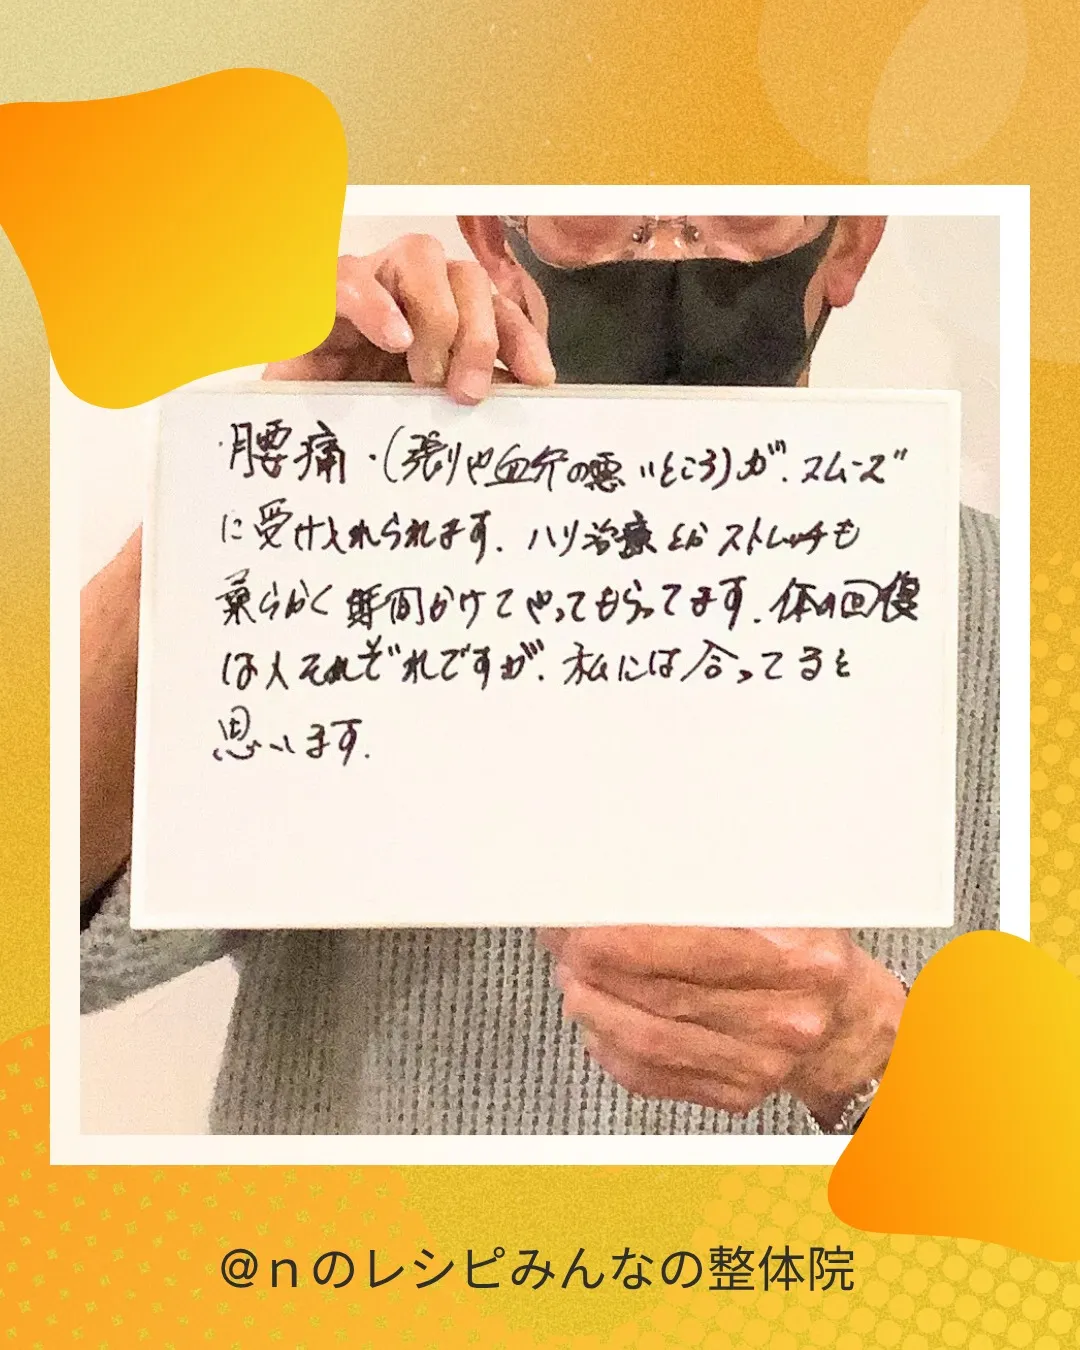 ・腰痛・(張りや血行の悪いところ)が、スムーズ
に受け入れられます。ハリ治療とかストレッチも
柔らかく時間かけてやってもらってます。体の回復
は人それぞれですが、私には合ってると
思います。
@nのレシピみんなの整体院